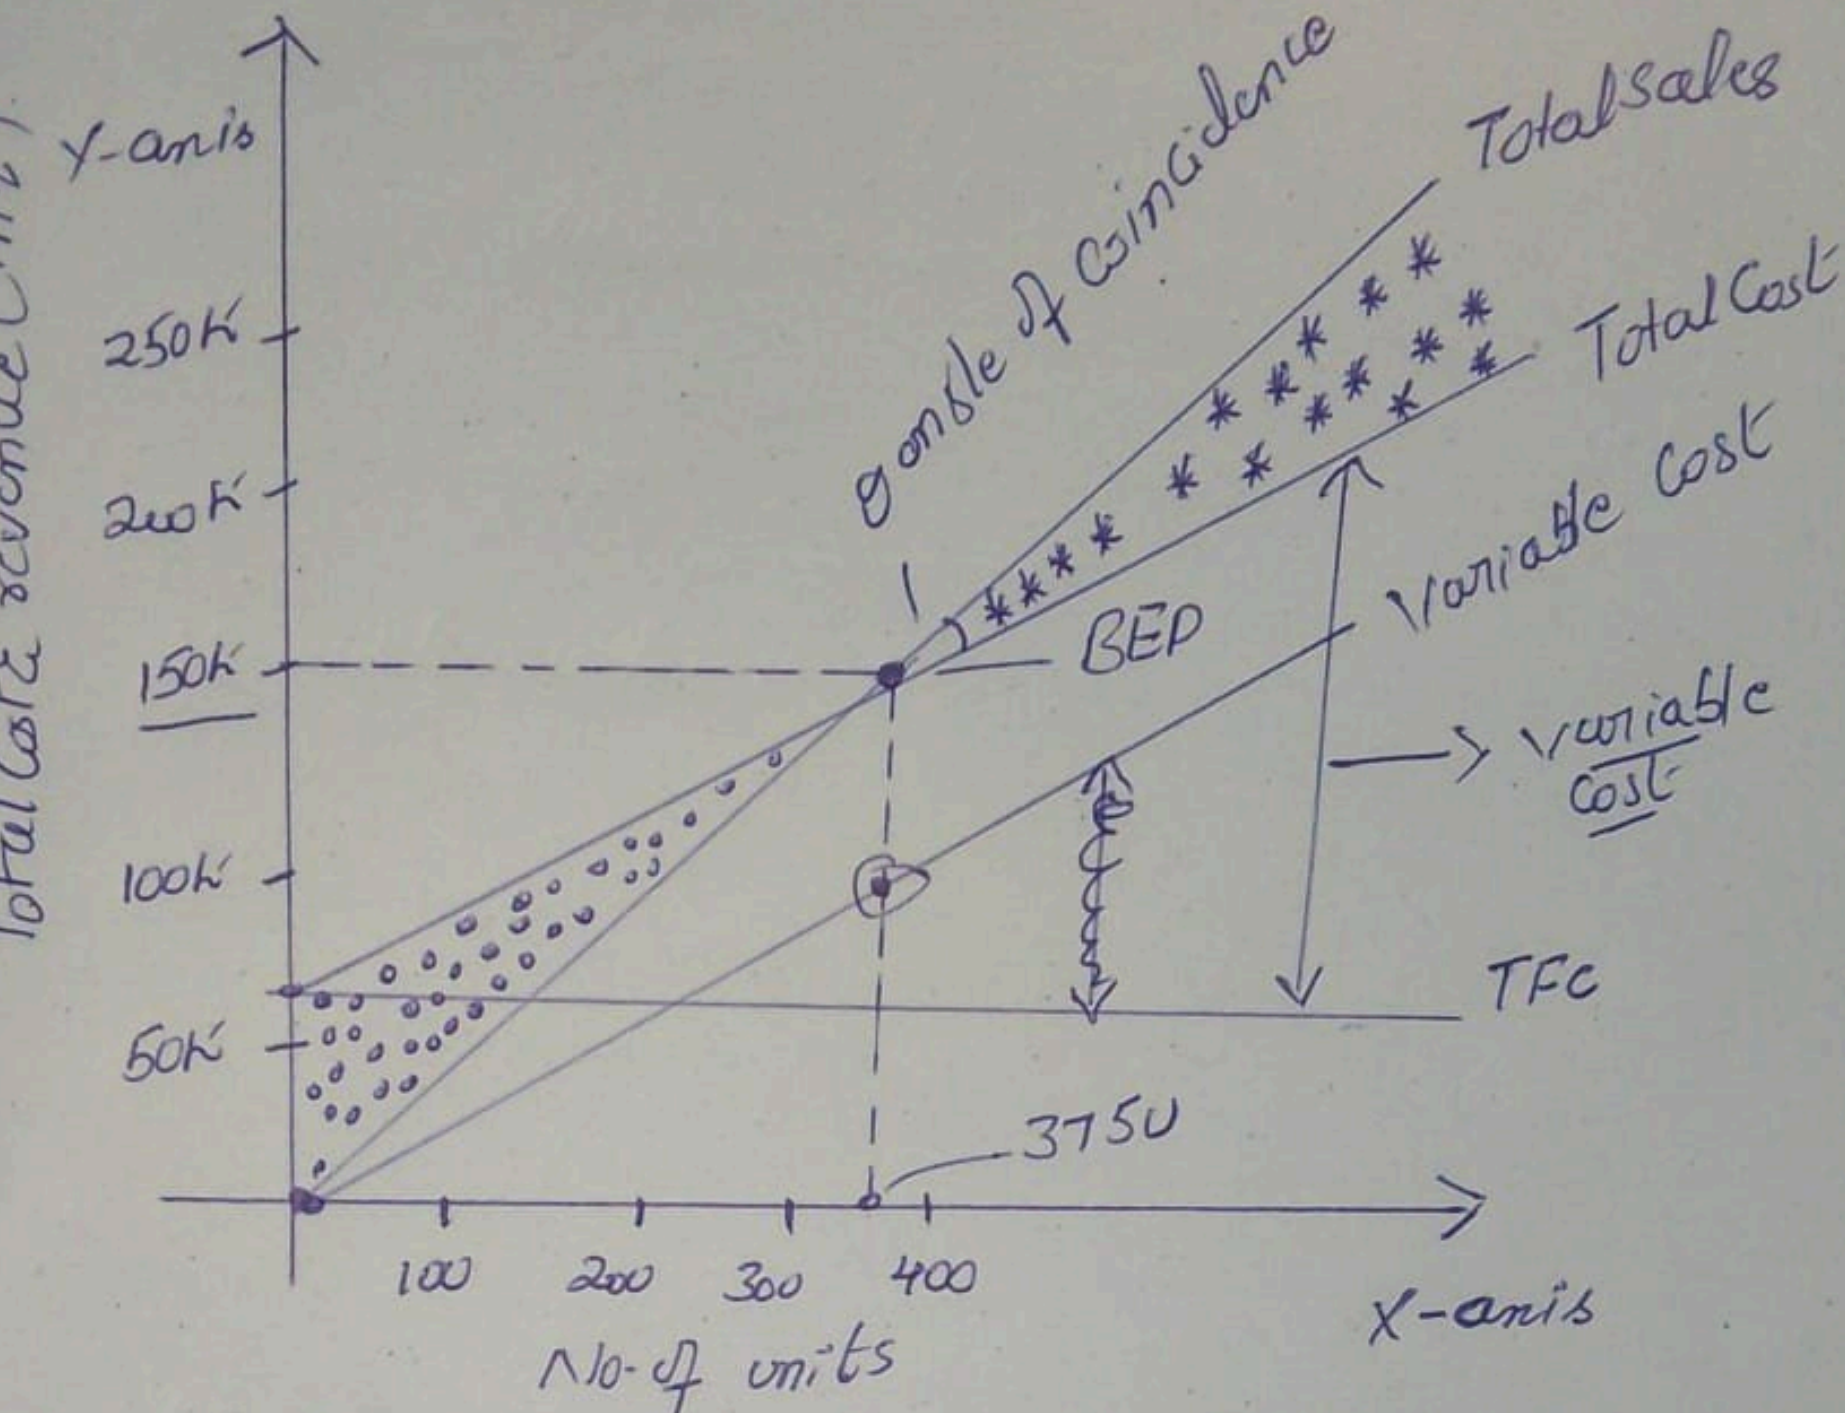 Y-anis
Total Cost & revenue
250K
200K
150K
100K
50K
θ angle of Coincidence
Total sales
Total Cost
Variable Cost
BEP
variable
Cost
TFC
375U
100 200 300 400
X-anis
No-of units